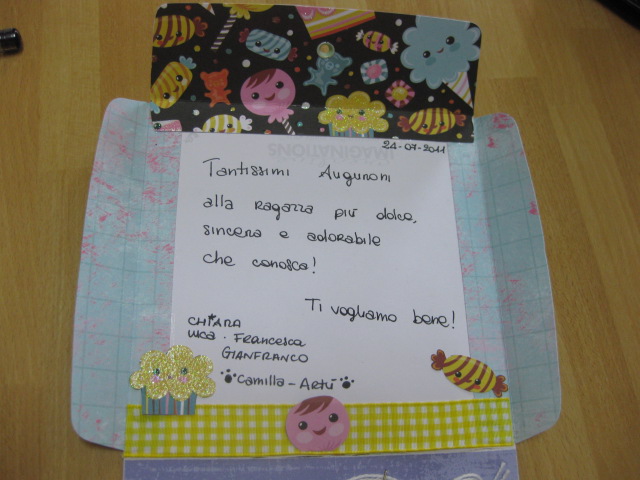 IMAGINATIONS
21-07-2011
Tantissimi Auguroni
alla ragazza più dolce,
sincera e adorabile
che conosca!
Ti vogliamo bene!
CHIARA
LUCA - Francesca
GIANFRANCO
Camilla - Artù